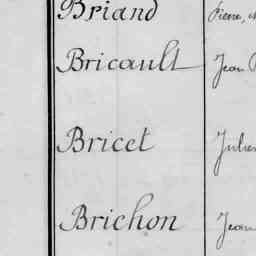 Briand Pierre,
Bricault Jean
Bricet Julien
Brichon Jean